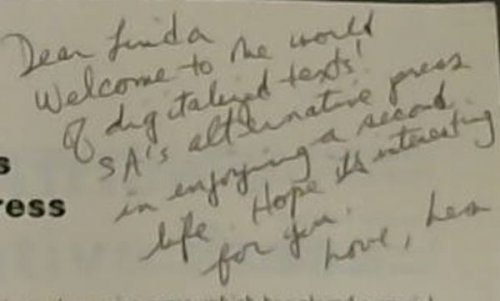 Dear Linda
Welcome to the world
of digitalized texts!
SA's alternative press
in enjoying a second
life. Hope its interesting
for you.
Love, Len
s
ress